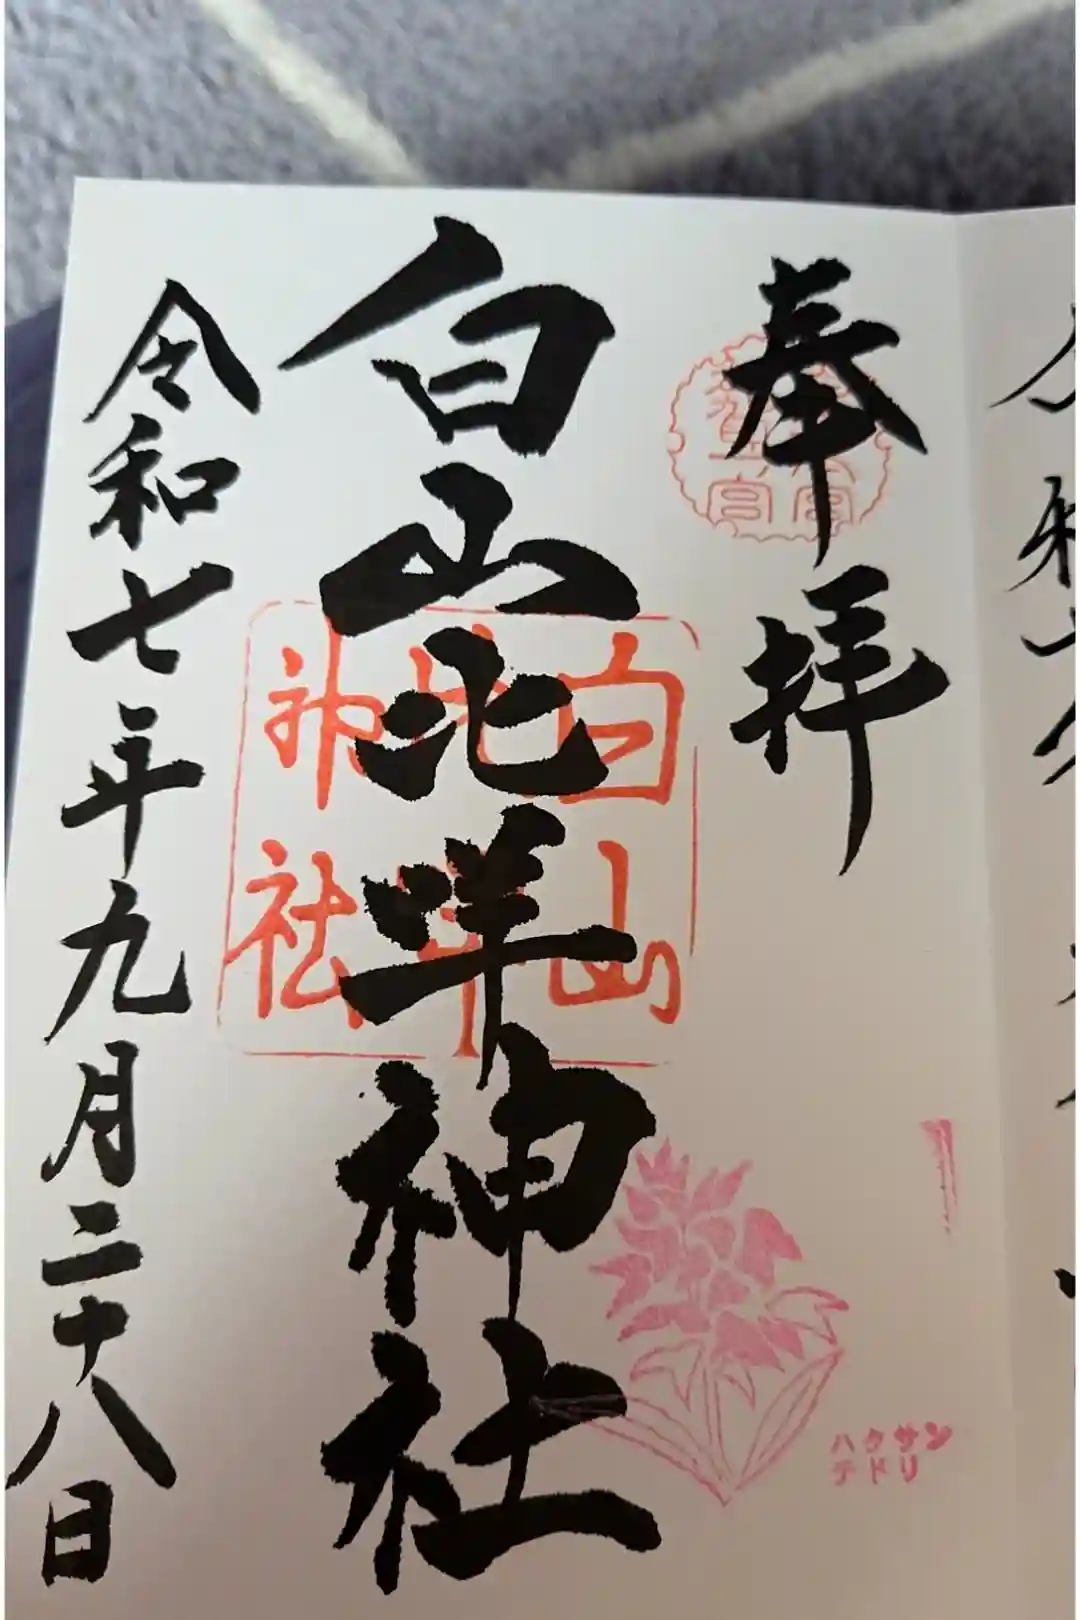 奉拝
白山比咩神社
白山
比咩
神社
令和七年九月二十八日
ハクサン
チドリ